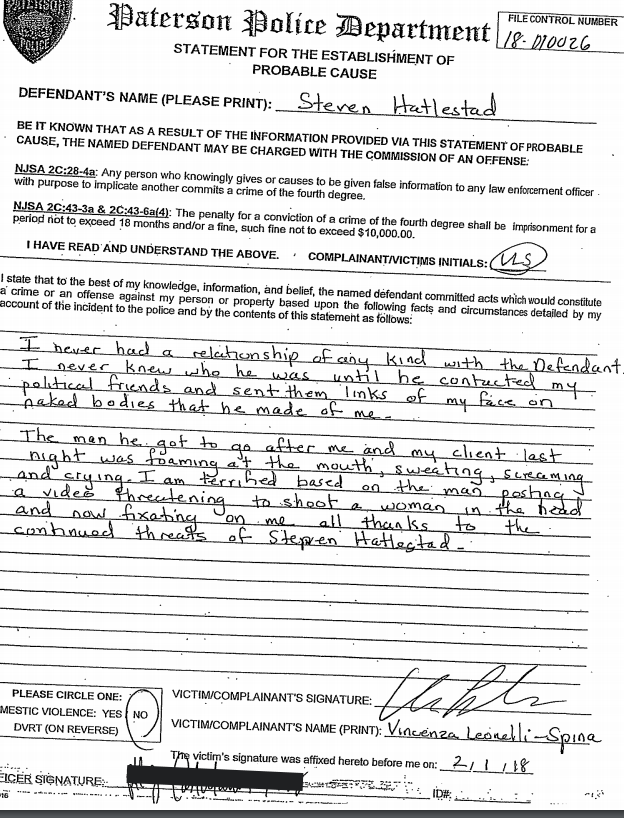 PATERSON
POLICE
Paterson Police Department
FILE CONTROL NUMBER
18-D10026
STATEMENT FOR THE ESTABLISHMENT OF
PROBABLE CAUSE
DEFENDANT'S NAME (PLEASE PRINT): Steven Hatlestad
BE IT KNOWN THAT AS A RESULT OF THE INFORMATION PROVIDED VIA THIS STATEMENT OF PROBABLE
CAUSE, THE NAMED DEFENDANT MAY BE CHARGED WITH THE COMMISSION OF AN OFFENSE:
NJSA 2C:28-4a: Any person who knowingly gives or causes to be given false information to any law enforcement officer
with purpose to implicate another commits a crime of the fourth degree.
NJSA 2C:43-3a & 2C:43-6a(4): The penalty for a conviction of a crime of the fourth degree shall be imprisonment for a
period not to exceed 18 months and/or a fine, such fine not to exceed $10,000.00.
I HAVE READ AND UNDERSTAND THE ABOVE. COMPLAINANT/VICTIMS INITIALS: VLS
I state that to the best of my knowledge, information, and belief, the named defendant committed acts which would constitute
a crime or an offense against my person or property based upon the following facts and circumstances detailed by my
account of the incident to the police and by the contents of this statement as follows:
I never had a relationship of any kind with the Defendant.
I never knew who he was until he contacted my
political friends and sent them links of my face on
naked bodies that he made of me.
The man he got to go after me and my client last
night was foaming at the mouth, sweating, screaming
and crying. I am terrified based on the man posting
a video threatening to shoot a woman in the head
and now fixating on me all thanks to the
continued threats of Stepven Hatlestad.
PLEASE CIRCLE ONE:
MESTIC VIOLENCE: YES NO
DVRT (ON REVERSE)
VICTIM/COMPLAINANT'S SIGNATURE:
VICTIM/COMPLAINANT'S NAME (PRINT): Vincenza Leonelli-Spina
The victim's signature was affixed hereto before me on: 2/1/18
FICER SIGNATURE: ID#: